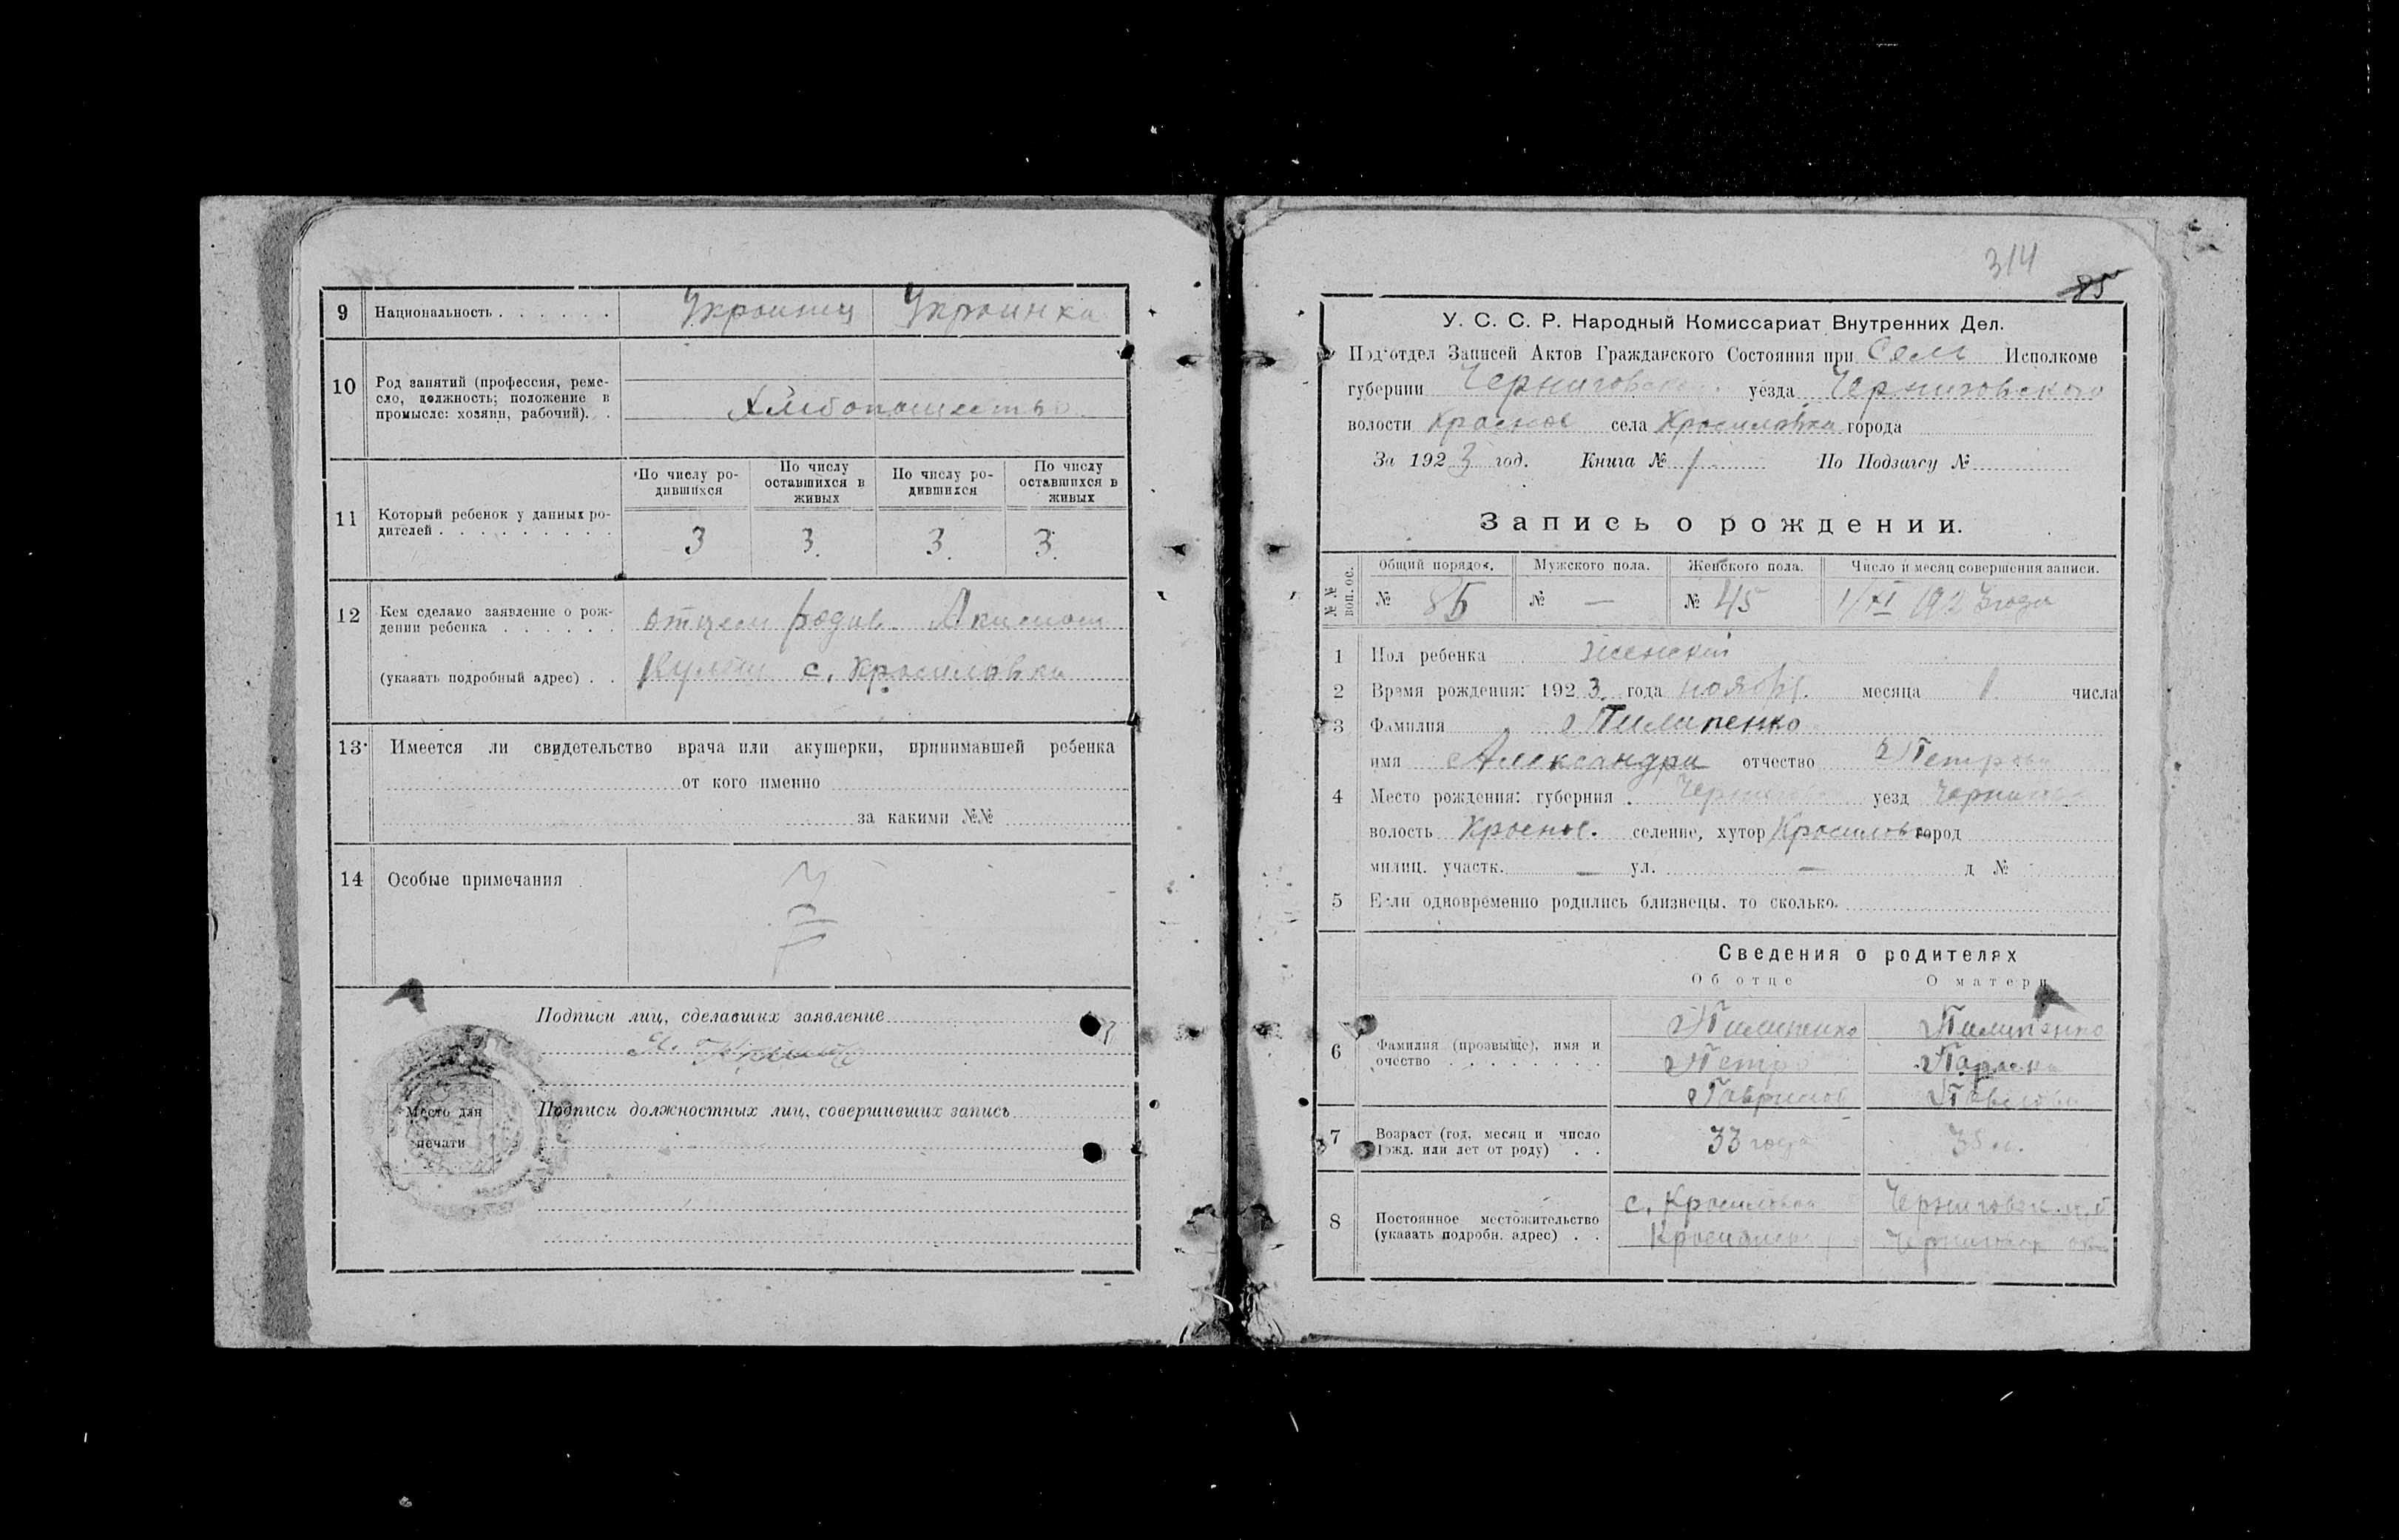 9 Национальность . . . . . . Украинец Украинка
10 Род занятий (профессия, реме-
сло, должность; положение в
промысле: хозяин, рабочий). .
Хлебопашество
11 Который ребенок у данных ро-
дителей . . . . . . . . .
По числу ро-
дившихся
По числу
оставшихся в
живых
По числу ро-
дившихся
По числу
оставшихся в
живых
3 3. 3. 3.
12 Кем сделано заявление о рож-
дении ребенка . . . . . .
отцем
(указать подробный адрес) . .
с. Красиловка
13 Имеется ли свидетельство врача или акушерки, принимавшей ребенка
от кого именно
за какими №№
14 Особые примечания
Подписи лиц, сделавших заявление
Подписи должностных лиц, совершивших запись
Место для
печати
314
85
У. С. С. Р. Народный Комиссариат Внутренних Дел.
Под'отдел Записей Актов Гражданского Состояния при Сель Исполкоме
губернии Черниговской уезда Черниговского
волости Красное села Красиловка города
За 1923 год. Книга № 1 По Подзагсу №
Запись о рождении.
№ № воп. ос.
Общий порядок. Мужского пола. Женского пола. Число и месяц совершения записи.
№ 85 № — № 45 1/XI 1923 года
1 Пол ребенка женский
2 Время рождения: 1923 года ноября месяца 1 числа
3 Фамилия Пилипенко
имя Александра отчество Петрова
4 Место рождения: губерния Чернигов уезд Чернигов
волость Красное. селение, хутор Красиловка город
милиц. участк. — ул. — д №
5 Если одновременно родились близнецы, то сколько.
Сведения о родителях
Об отце О матери
6 Фамилия (прозвыще), имя и
очество . . . . . . . .
Пилипенко Пилипенко
Петро
Гаврилов Павлова
7 Возраст (год, месяц и число
рожд. или лет от роду) . .
33 года 35 л.
8 Постоянное местожительство
(указать подробн. адрес) . .
с. Красиловка